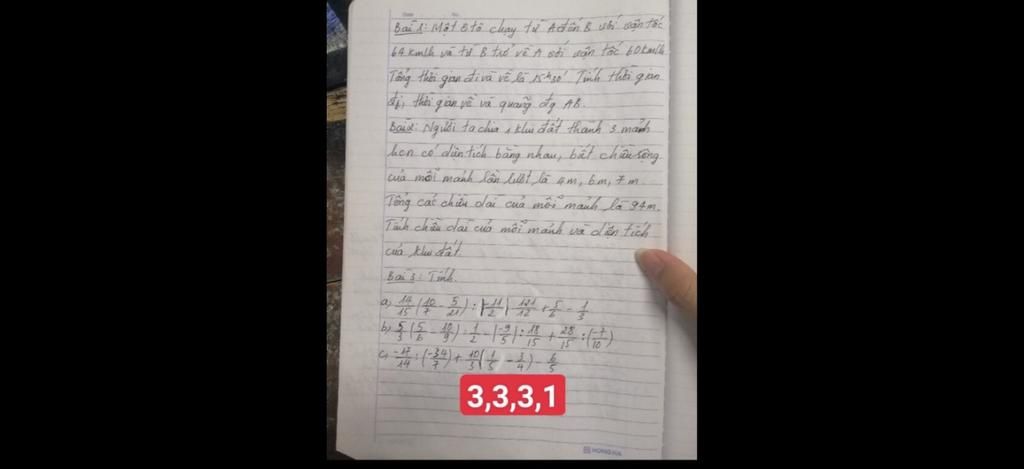 Bài 1: Một ô tô chạy từ A đến B với vận tốc
64 km/h và từ B trở về A với vận tốc 60 km/h
Tổng thời gian đi và về là 15h30' Tính thời gian
đi, thời gian về và quãng đg AB.
Bài 2: Người ta chia 1 khu đất thành 3 mảnh
hcn có diện tích bằng nhau, biết chiều rộng
của mỗi mảnh lần lượt là 4m, 6m, 7m.
Tổng các chiều dài của mỗi mảnh là 94m.
Tính chiều dài của mỗi mảnh và diện tích
của khu đất.
Bài 3: Tính.
a) 14/15 (10/7 - 5/21) : |-11/2| 121/12 + 5/6 - 1/3
b) 5/3 (5/6 - 10/9) : 1/2 - (-9/5) : 18/15 + 28/15 : (-7/10)
c) -17/14 : (-34/7) + 10/3 (1/5 - 3/4) - 6/5
3,3,3,1
HONG HA